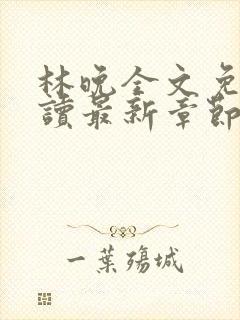 林晚全文免
讀最新章節
一葉殤城